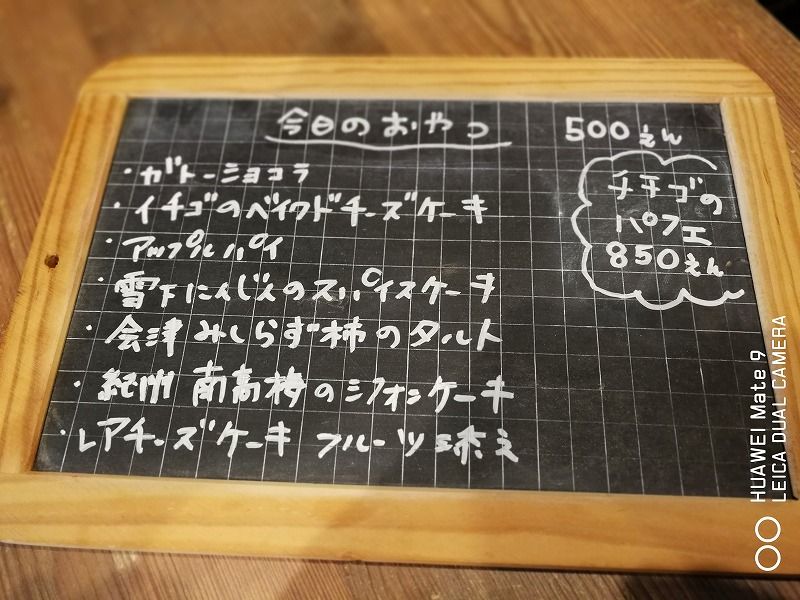 今日のおやつ 500えん
・ガトーショコラ
・イチゴのベイクドチーズケーキ
・アップルパイ
・雪下にんじんのスパイスケーキ
・会津みしらず柿のタルト
・紀州 南高梅のシフォンケーキ
・レアチーズケーキ フルーツ添え
イチゴの
パフェ
850えん
HUAWEI Mate 9
LEICA DUAL CAMERA